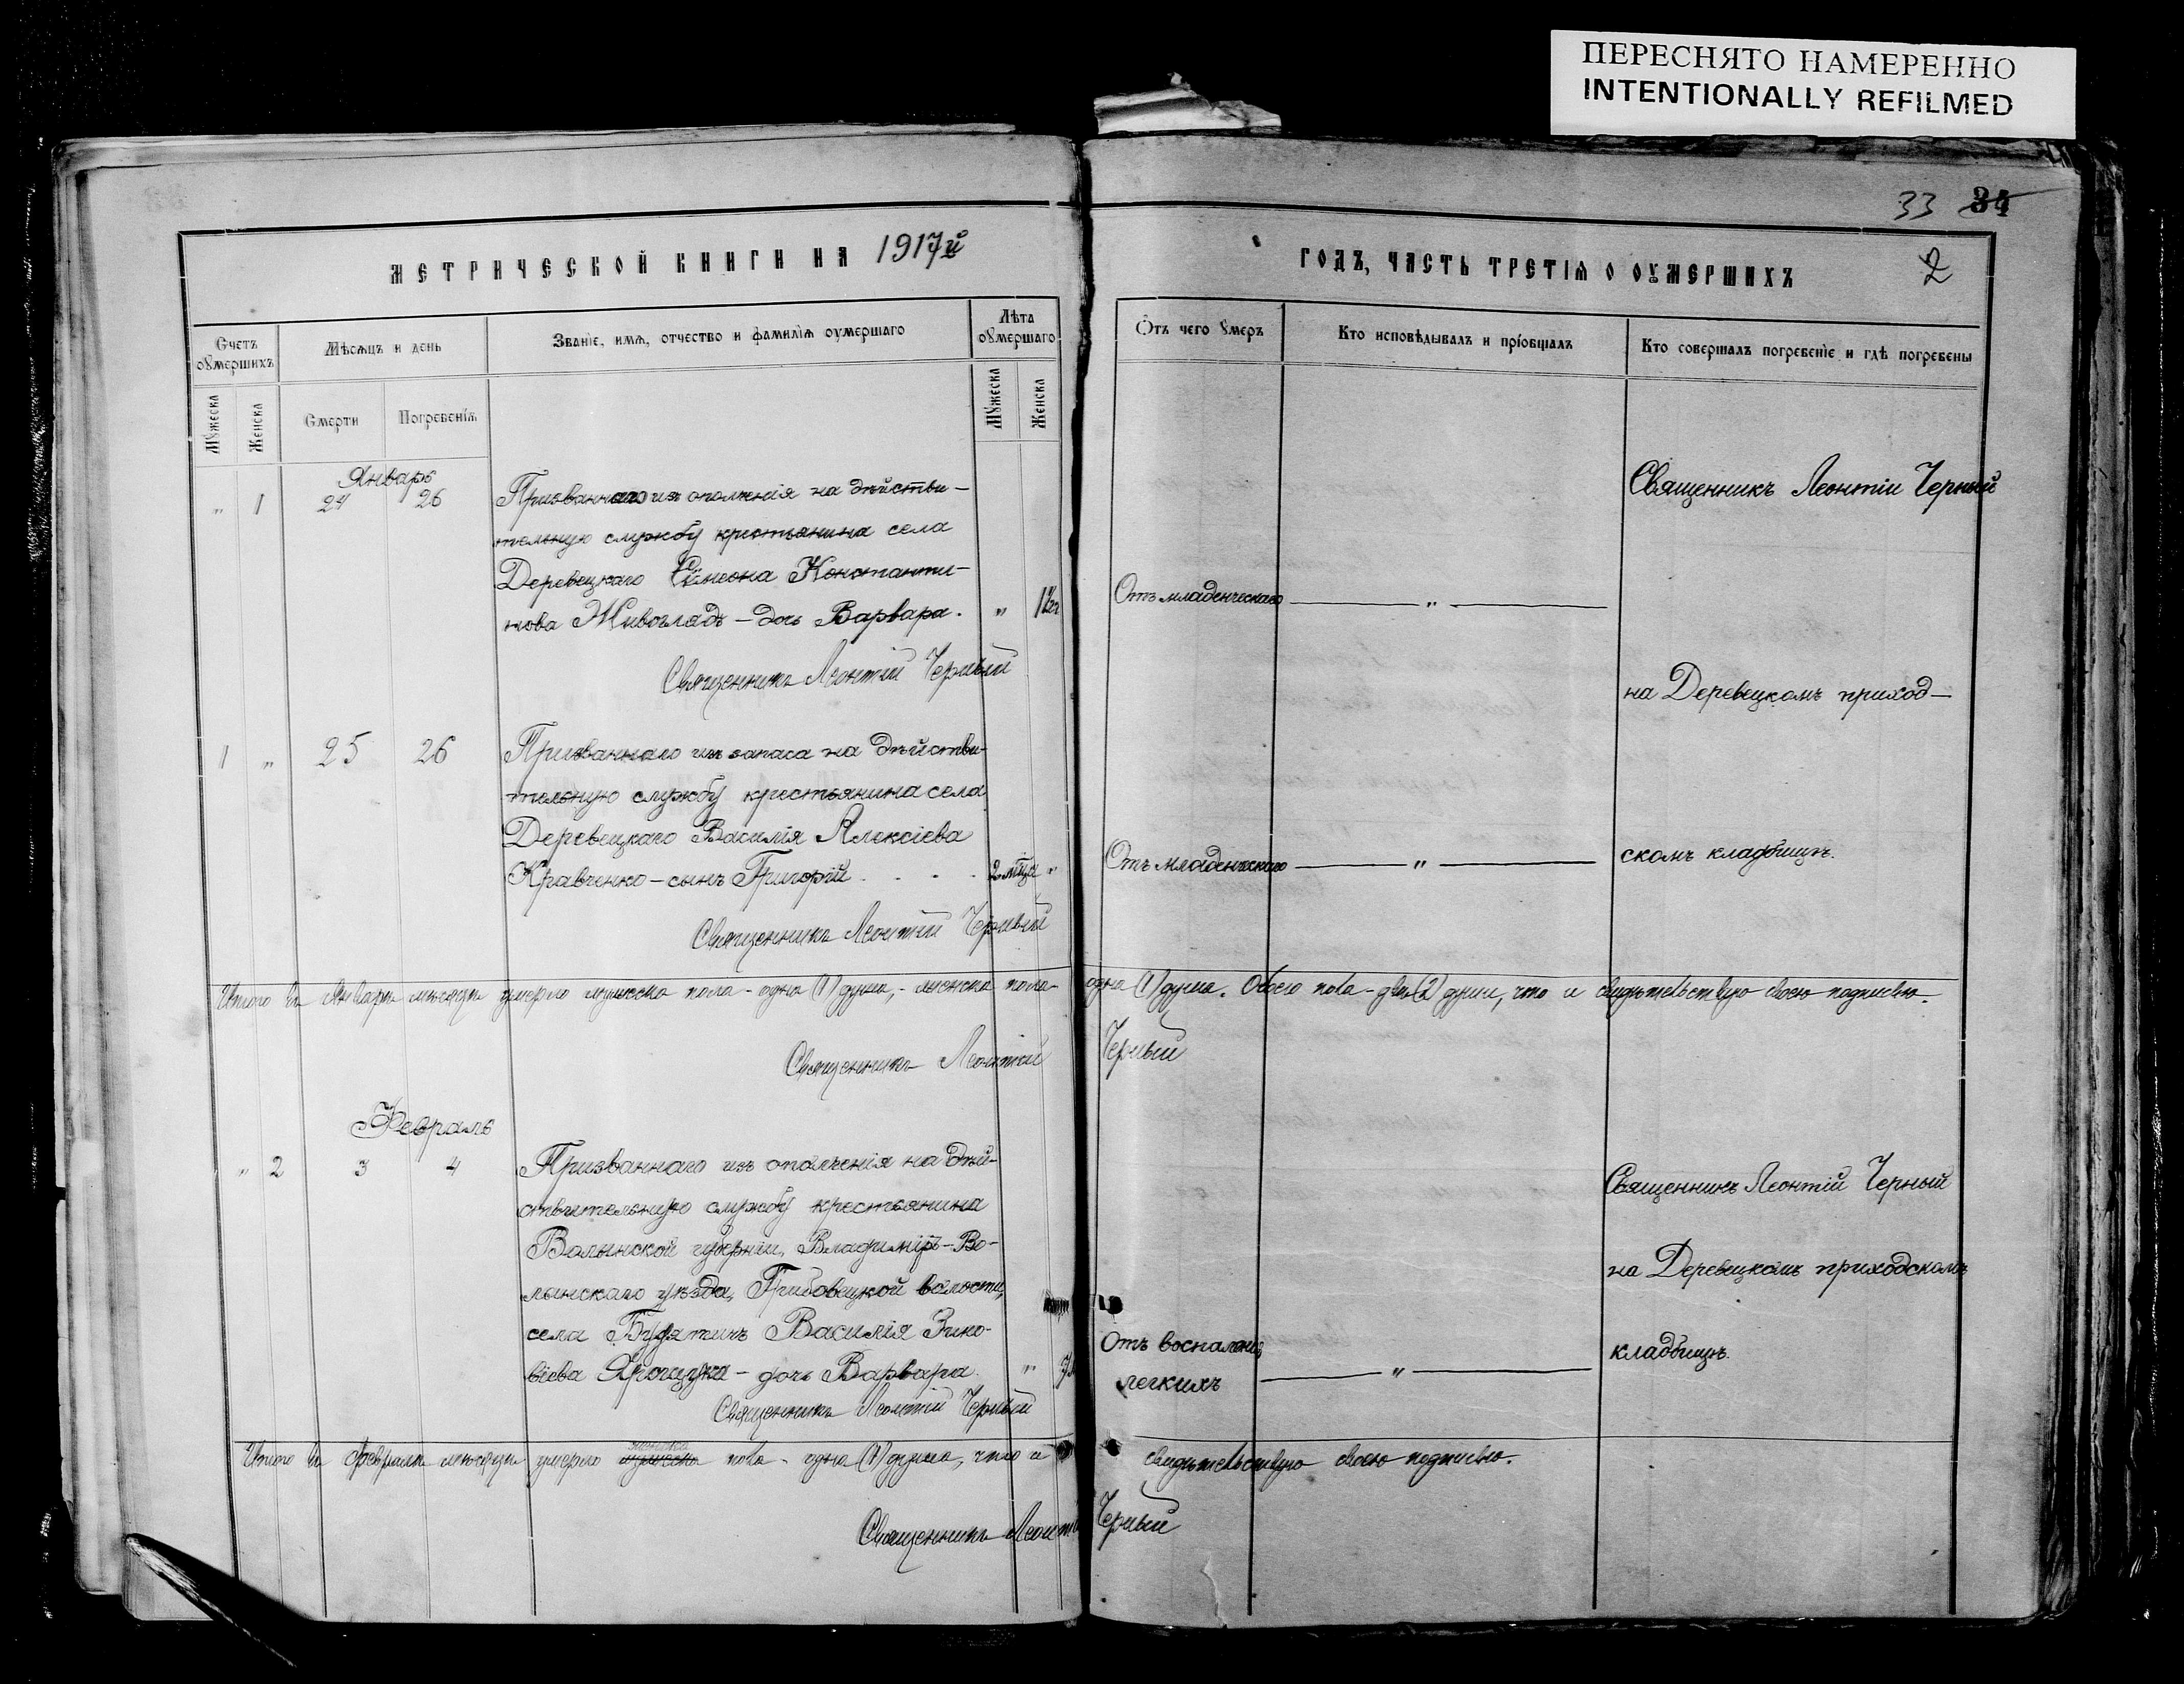 ПЕРЕСНЯТО НАМЕРЕННО
INTENTIONALLY REFILMED
33 34
МЕТРИЧЕСКОЙ КНИГИ НА 1917й
ГОДЪ, ЧАСТЬ ТРЕТІѦ О ОУМЕРШИХЪ
2
Счетъ оумершихъ
Мѣсѧцъ и день
Званіе, имѧ, отчество и фамиліѧ оумершаго
Лѣта оумершаго
Мужеска
Женска
Смерти
Погребеніѧ
Мужеска
Женска
Отъ чего умеръ
Кто исповѣдывалъ и пріобщалъ
Кто совершалъ погребеніе и гдѣ погребены
Январь
„ 1 24 26 Призваннаго изъ ополченія на дѣйстви-
тельную службу крестьянина села
Деревецкаго Симеона Константи-
нова Живоглядъ - дочь Варвара. „
Отъ младенческаго „
Священникъ Леонтій Черный
на Деревецкомъ приход-
Священникъ Леонтій Черный
1 „ 25 26 Призваннаго изъ запаса на дѣйстви-
тельную службу крестьянина села
Деревецкаго Василія Алексіева
Кравченко - сынъ Григорій . . . . 2 мѣца „
Отъ младенческаго „
скомъ кладбищѣ.
Священникъ Леонтій Черный
Итого въ Январѣ мѣсяцѣ умерло мужеска пола - одна (1) душа, - женска пола - одна (1) душа. Обоего пола - двѣ (2) души, что и свидѣтельствую своею подписью.
Священникъ Леонтій Черный
Февраль
„ 2 3 4 Призваннаго изъ ополченія на дѣй-
ствительную службу крестьянина
Волынской губерніи, Владиміръ-Во-
лынскаго уѣзда, Грибовецкой волости,
села Будятичъ Василія Зино-
віева Ярощука - дочь Варвара. „
Отъ воспаленія
легкихъ „
Священникъ Леонтій Черный
на Деревецкомъ приходскомъ
кладбищѣ.
Священникъ Леонтій Черный
Итого въ Февралѣ мѣсяцѣ умерло женска пола - одна (1) душа, что и свидѣтельствую своею подписью.
Священникъ Леонтій Черный